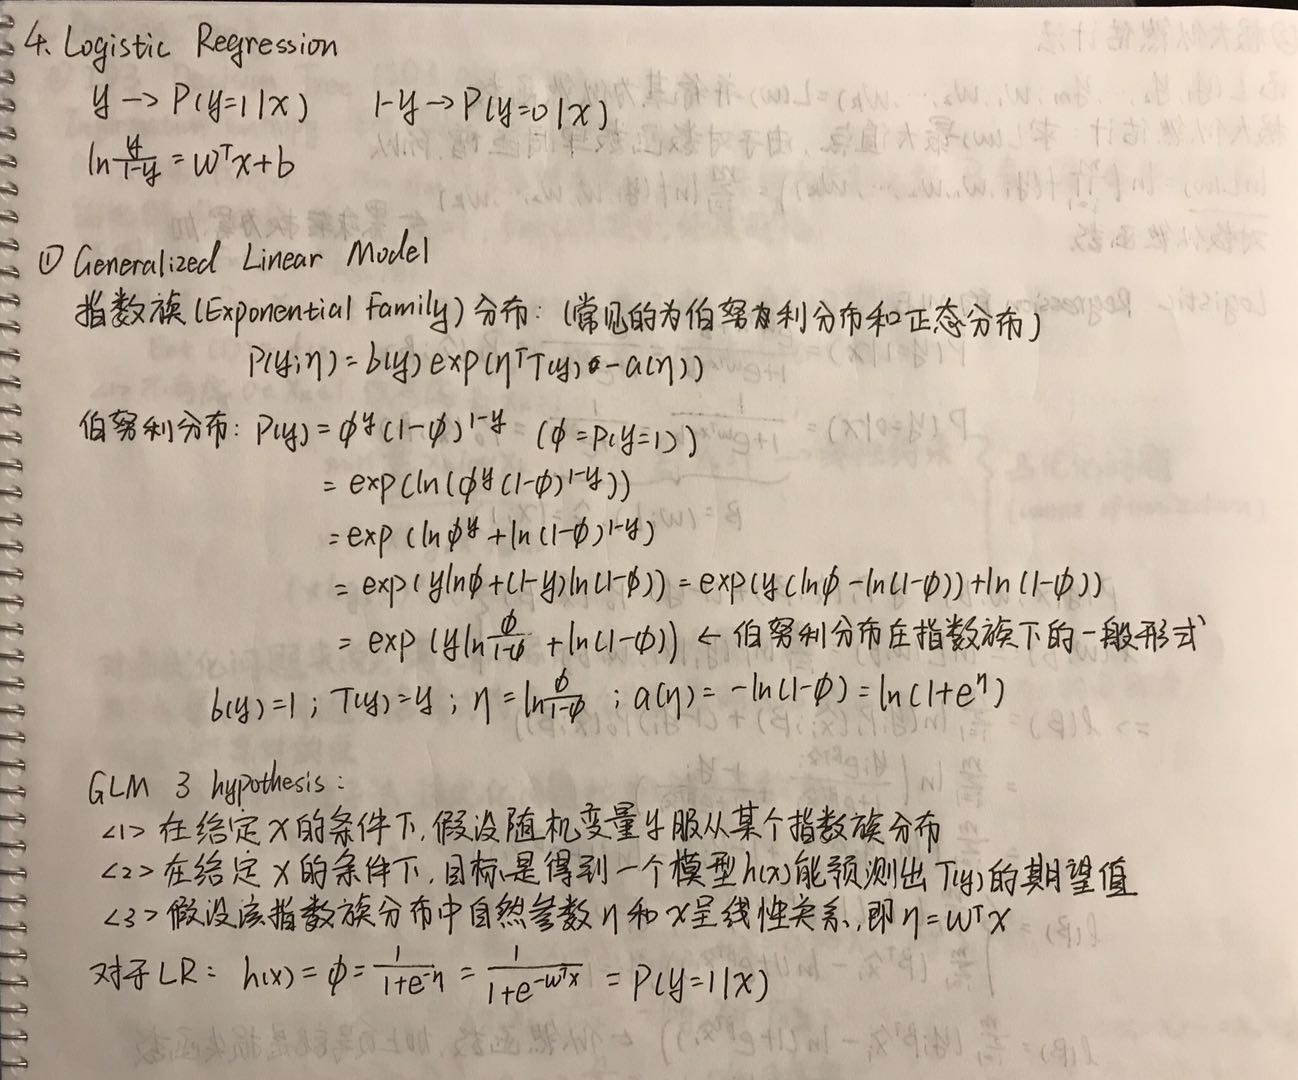 4. Logistic Regression
y → P(y=1|x)    1-y → P(y=0|x)
ln y/(1-y) = wᵀx+b
① Generalized Linear Model
指数族(Exponential Family)分布：(常见的为伯努利分布和正态分布)
P(y;η) = b(y) exp(ηᵀT(y) - a(η))
伯努利分布: P(y) = φ^y (1-φ)^(1-y)  (φ=P(y=1))
= exp(ln(φ^y (1-φ)^(1-y)))
= exp(lnφ^y + ln(1-φ)^(1-y))
= exp(ylnφ+(1-y)ln(1-φ)) = exp(y(lnφ-ln(1-φ))+ln(1-φ))
= exp(yln φ/(1-φ) + ln(1-φ)) ← 伯努利分布在指数族下的一般形式
b(y)=1; T(y)=y; η=ln φ/(1-φ); a(η) = -ln(1-φ) = ln(1+e^η)
GLM 3 hypothesis:
<1> 在给定x的条件下,假设随机变量y服从某个指数族分布
<2> 在给定x的条件下,目标是得到一个模型h(x)能预测出T(y)的期望值
<3> 假设该指数族分布中自然参数η和x呈线性关系,即η=wᵀx
对于LR: h(x) = φ = 1/(1+e^(-η)) = 1/(1+e^(-wᵀx)) = P(y=1|x)